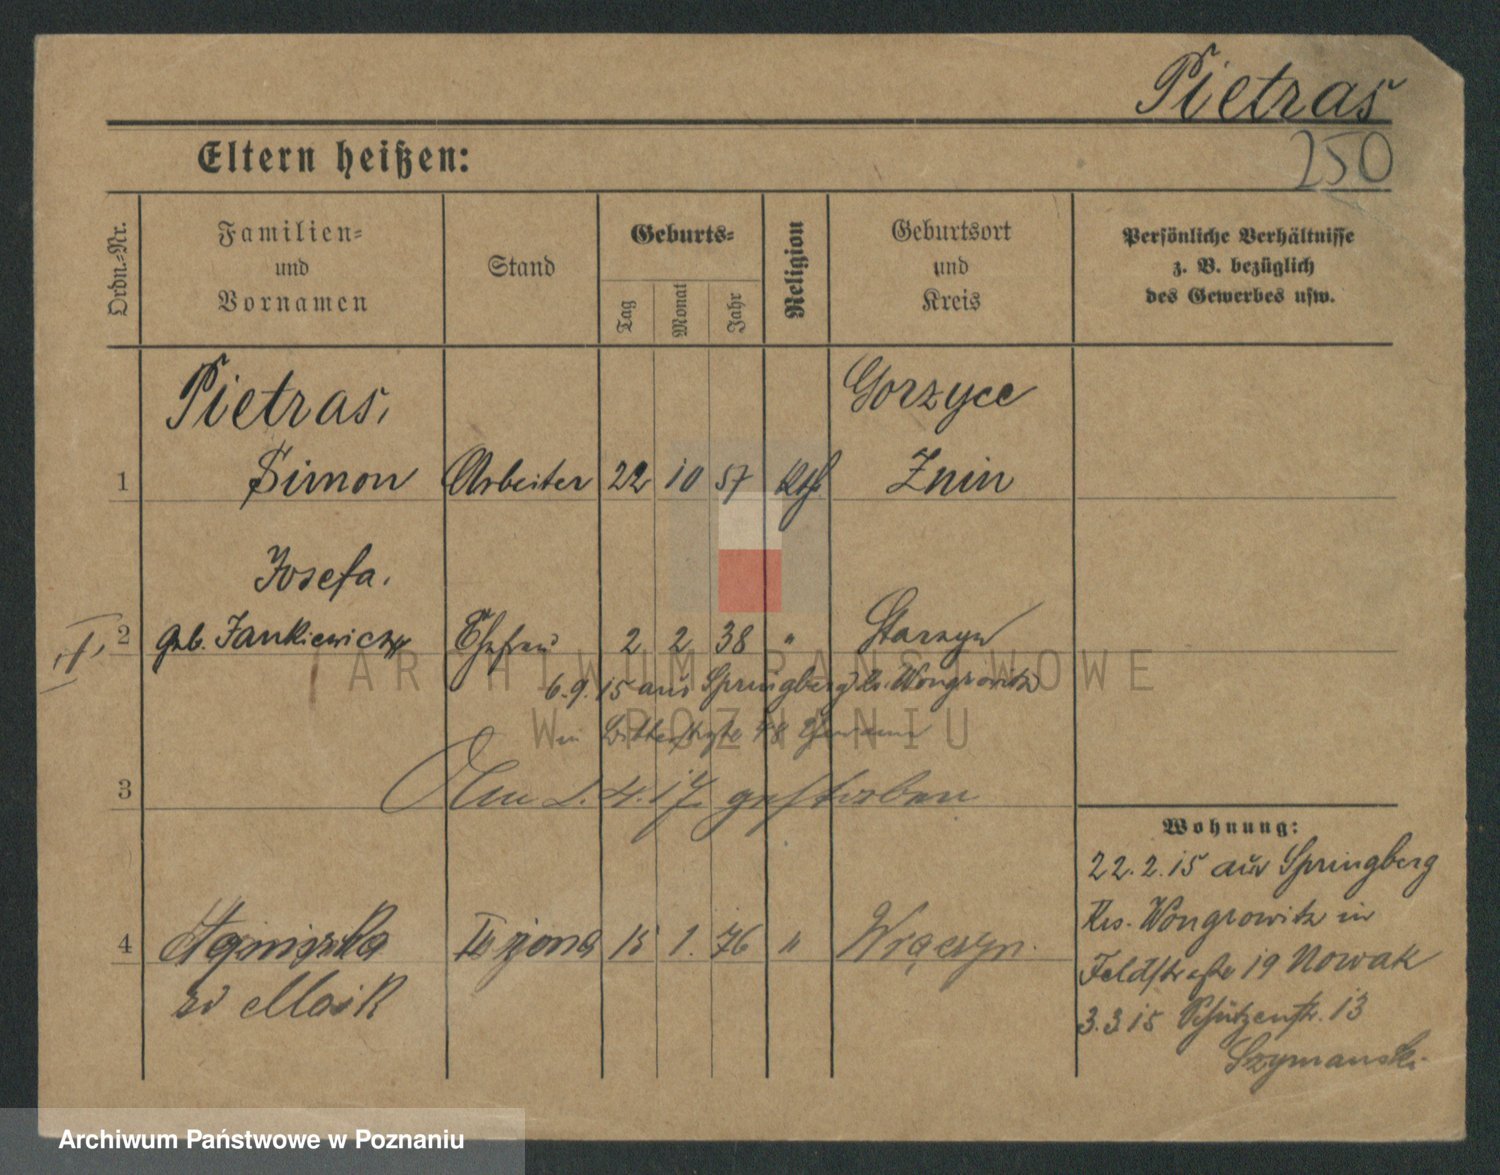 Pietras
250
Eltern heißen:
Ordn.-Nr.
Familien-
und
Vornamen
Stand
Geburts-
Tag
Monat
Jahr
Religion
Geburtsort
und
Kreis
Persönliche Verhältnisse
z. B. bezüglich
des Gewerbes usw.
Pietras,
Gorzyce
1 Simon Arbeiter 22 10 57 Kth Znin
Josefa.
2 geb. Jankiewicz Ehefrau 2 2 38 " Starzyn
6.9.15 aus Springberg Kr. Wongrowitz
in 48 Ehemann
3 Am 2.4.17. gestorben
4 II żona 15 1. 76 "
zd Maik
Wohnung:
22.2.15 aus Springberg
Krs. Wongrowitz in
Feldstraße 19 Nowak
3.3.15 Schützenstr. 13
Szymanski.
ARCHIWUM PAŃSTWOWE
W POZNANIU
Archiwum Państwowe w Poznaniu